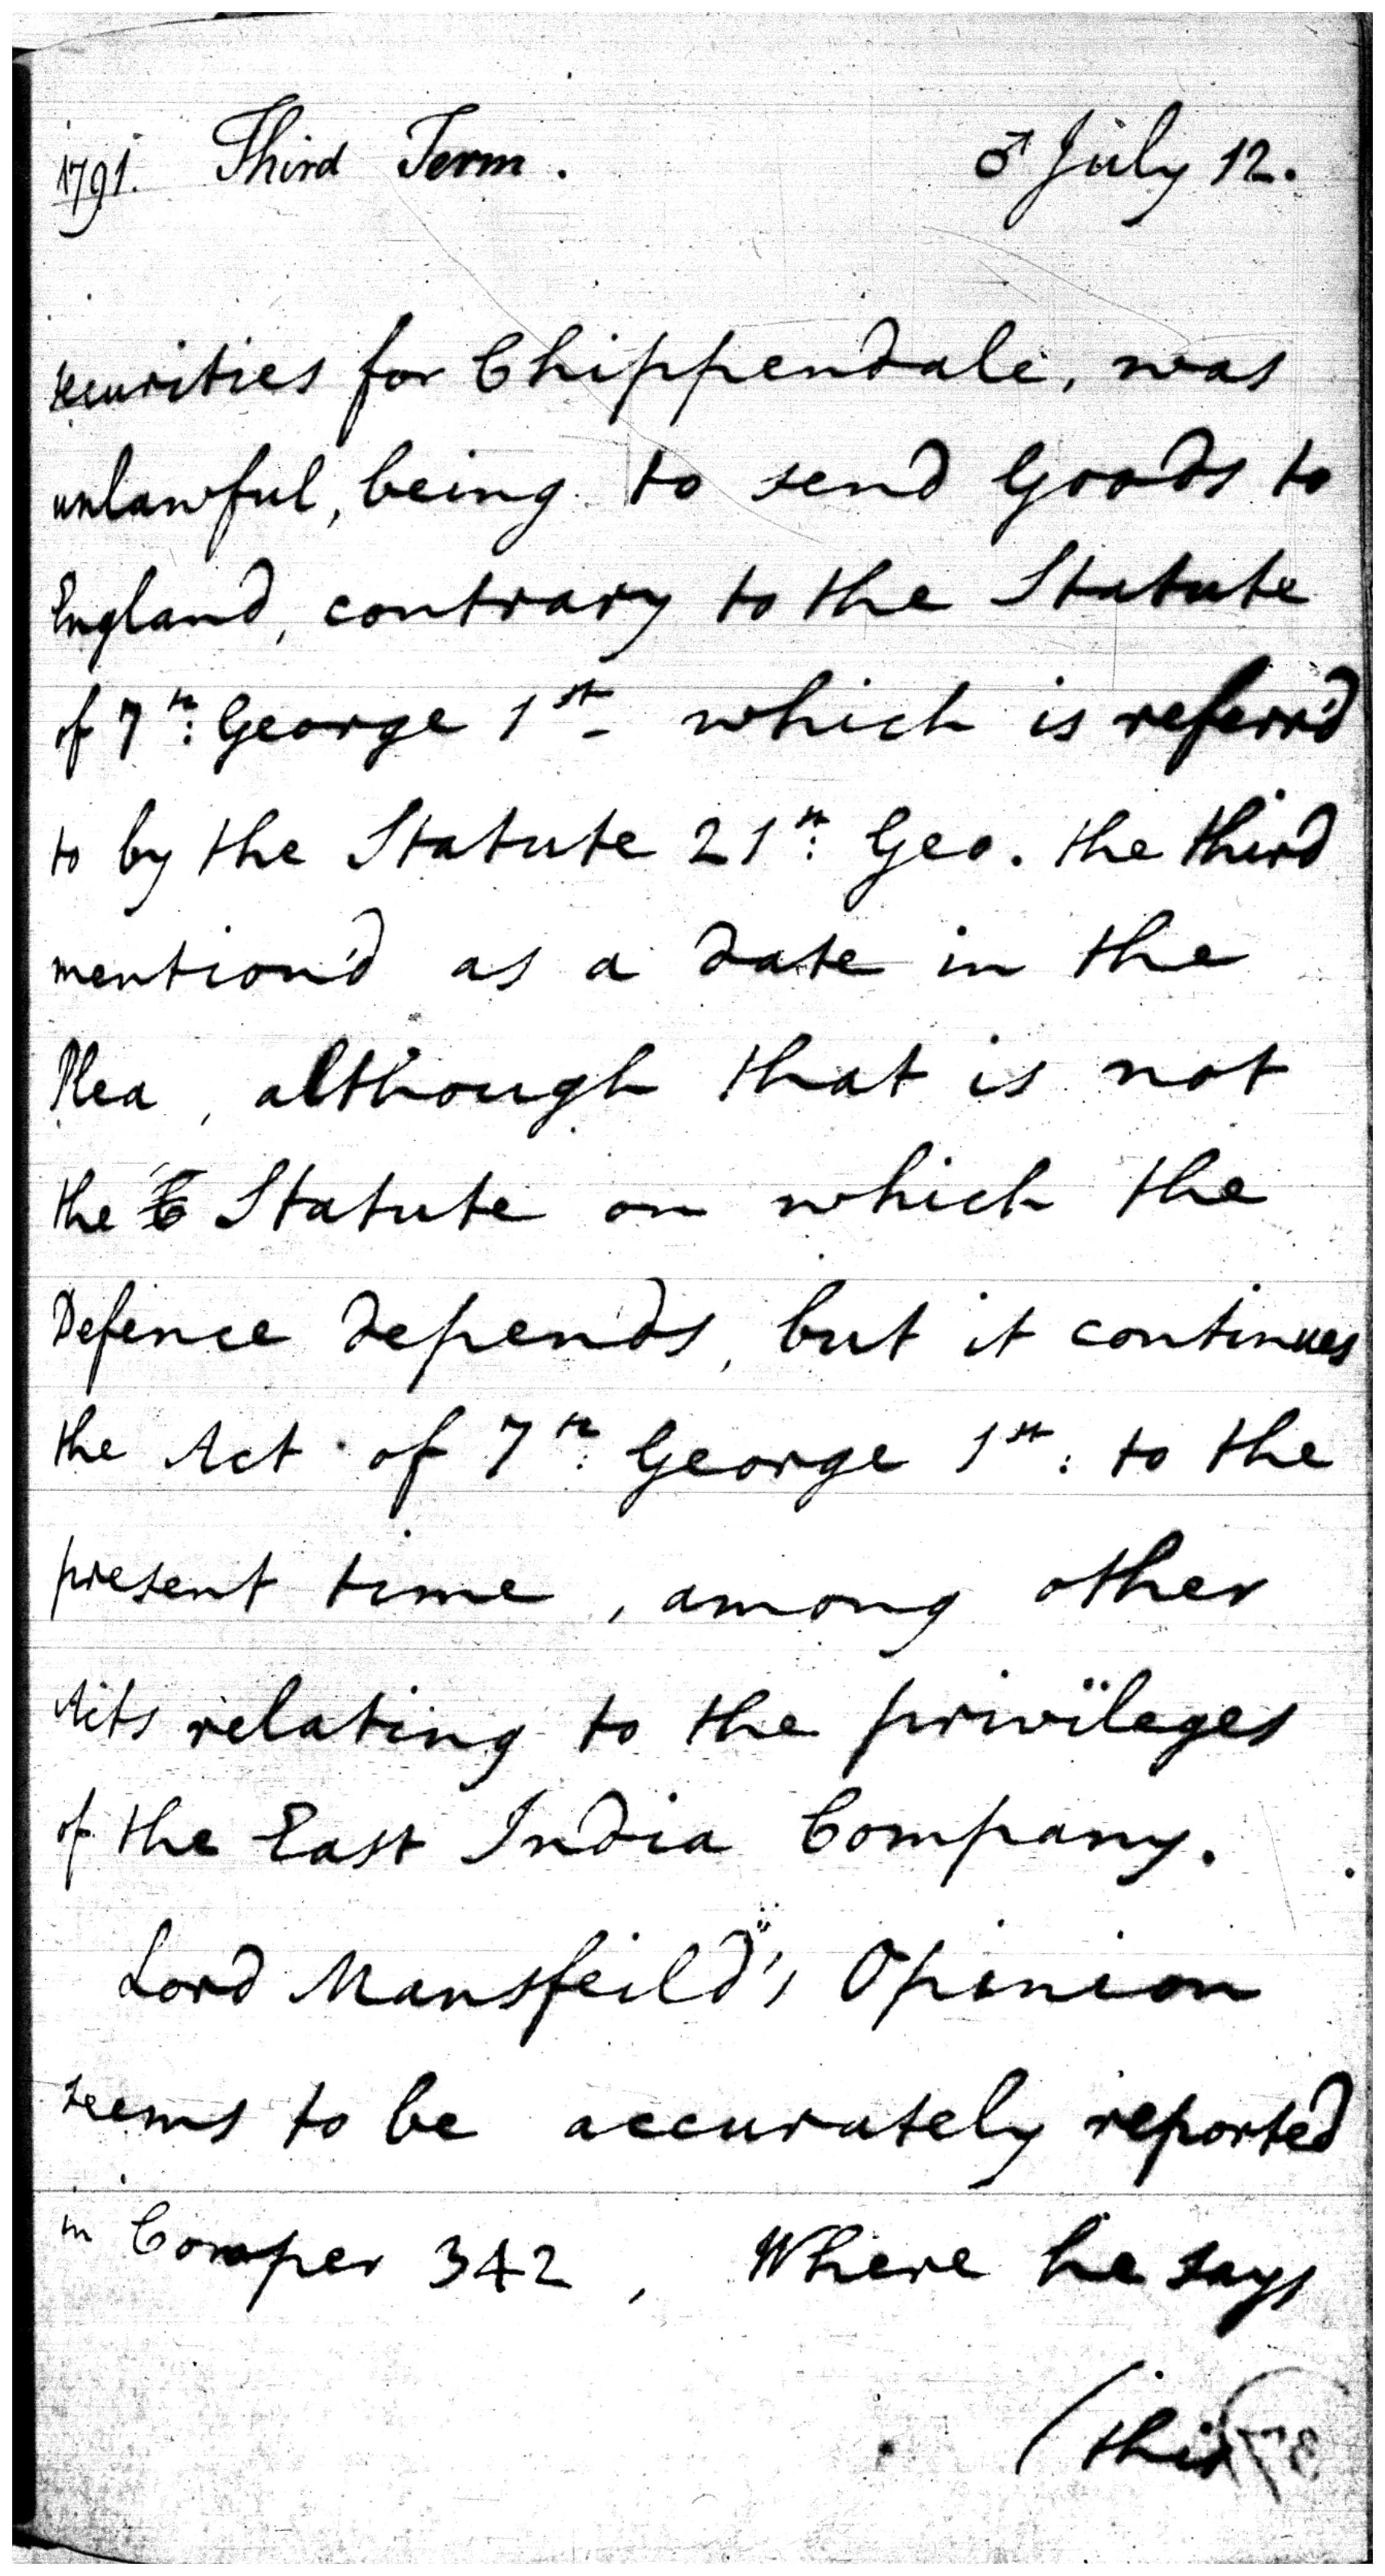 1791. Third Term. ♂ July 12.
securities for Chippendale, was
unlawful, being to send Goods to
England, contrary to the Statute
of 7th: George 1st- which is referr'd
to by the Statute 21st: Geo. the third
mention'd as a date in the
Plea, although that is not
the Statute on which the
Defence depends, but it continues
the Act of 7th: George 1st: to the
present time, among other
Acts relating to the privileges
of the East India Company.
Lord Mansfeild's Opinion
seems to be accurately reported
in Cowper 342, Where he says
(this